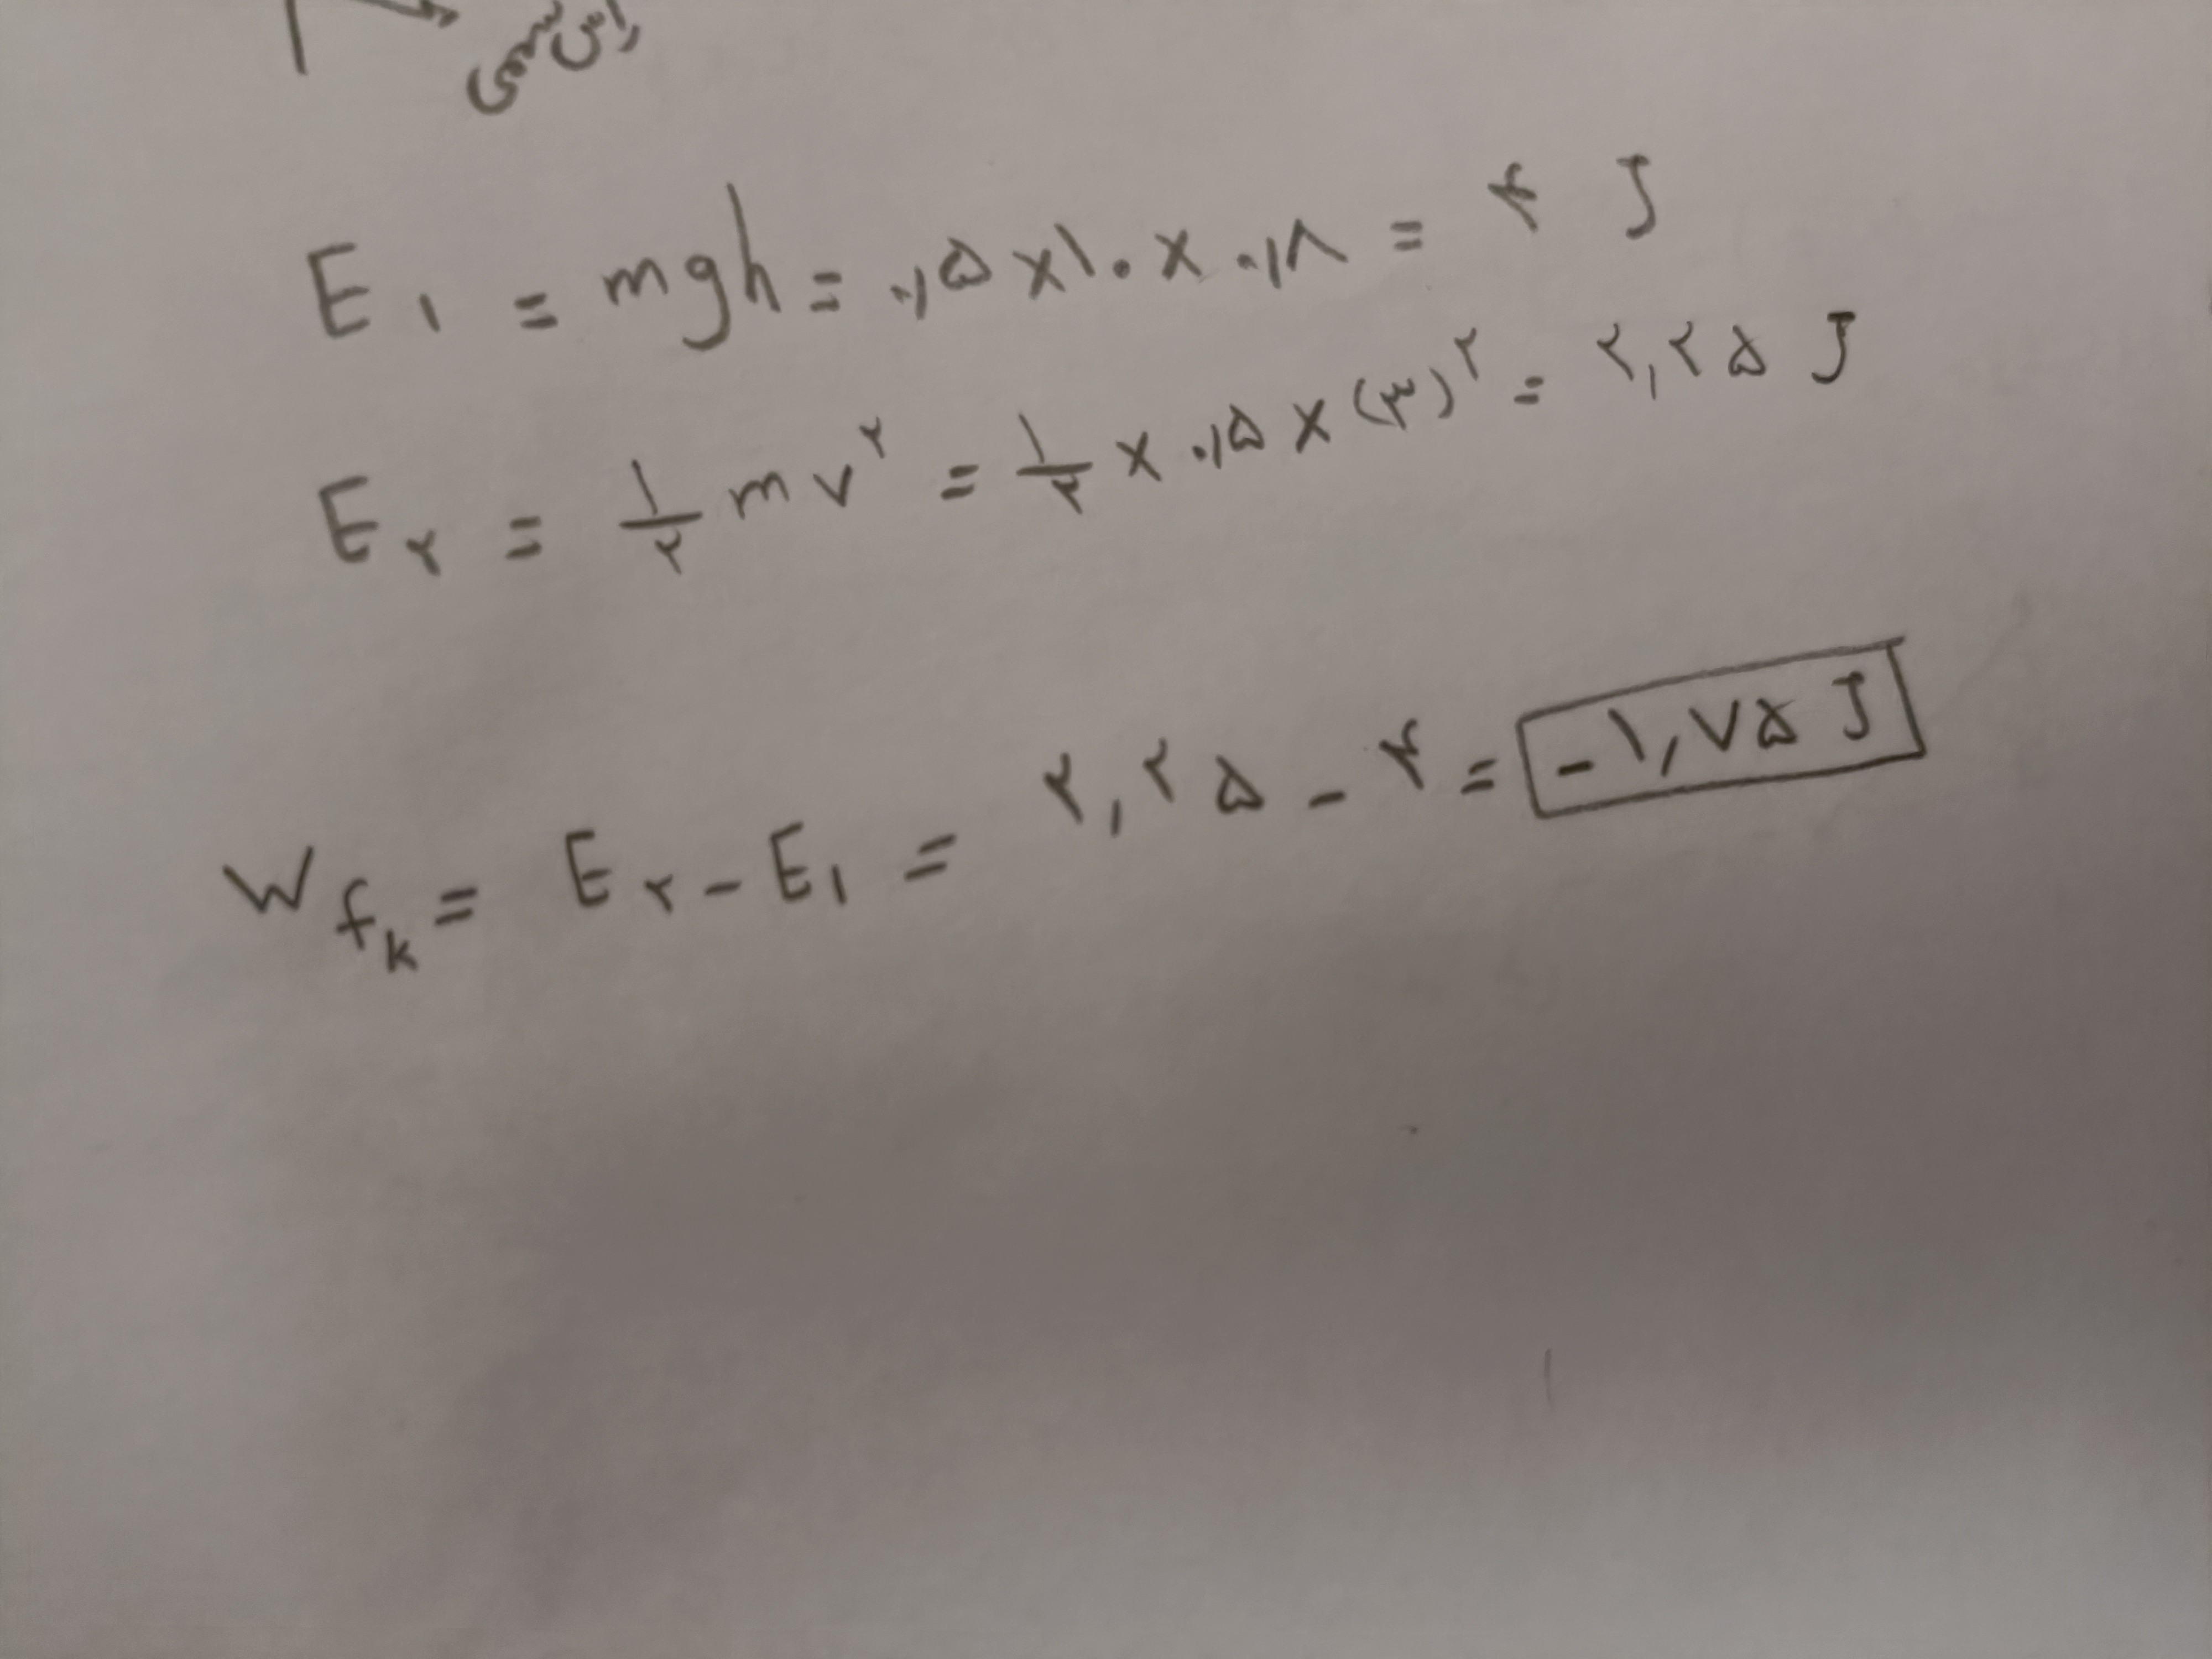 E۱ = mgh = ۰٫۵ × ۱۰ × ۰٫۸ = ۴ J
E۲ = ۱/۲ mv² = ۱/۲ × ۰٫۵ × (۳)² = ۲٫۲۵ J
W fk = E۲ - E۱ = ۲٫۲۵ - ۴ = -۱٫۷۵ J